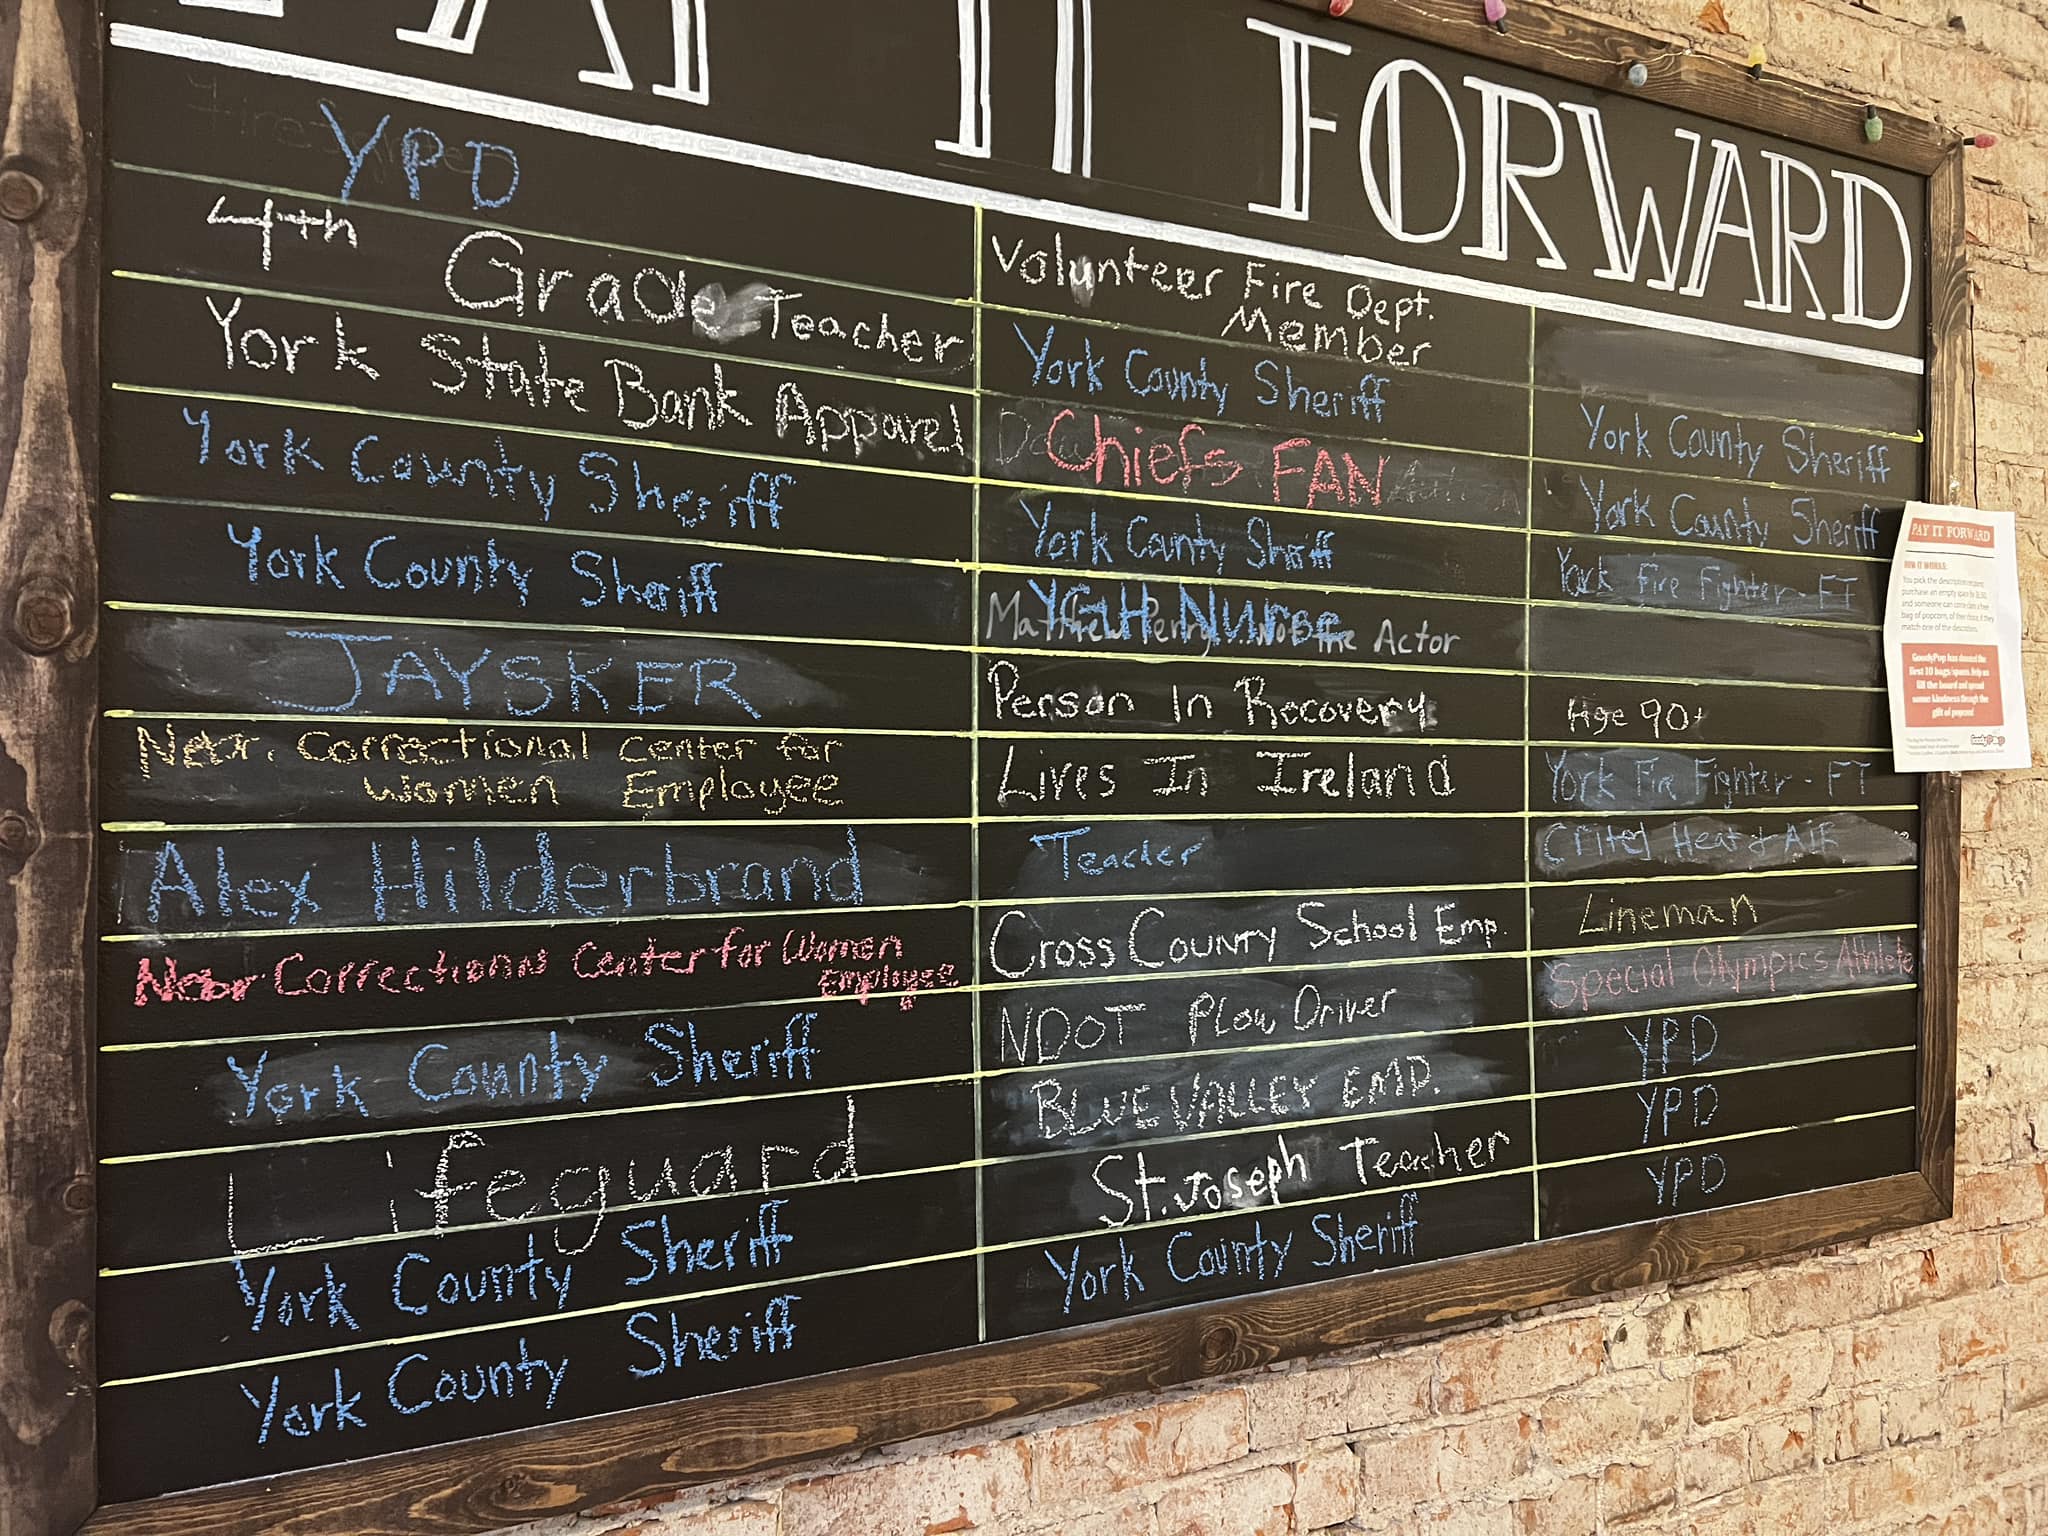 PAY IT FORWARD
YPD
4th Grade Teacher
York State Bank Apparel
York County Sheriff
York County Sheriff
JAYSKER
Nebr. Correctional Center for
Women Employee
Alex Hilderbrand
Nebr Corrections Center for Women
Employee
York County Sheriff
Lifeguard
York County Sheriff
York County Sheriff
Volunteer Fire Dept.
Member
York County Sheriff
Chiefs FAN
York County Shriff
YGH Nurse
Matthew Perry... Not the Actor
Person In Recovery
Lives In Ireland
Teacher
Cross County School Emp.
NDOT Plow Driver
BLUE VALLEY EMP.
St. Joseph Teacher
York County Sheriff
York County Sheriff
York County Sheriff
York Fire Fighter - FT
Age 90+
York Fire Fighter - FT
Heat & Air
Lineman
Special Olympics Athlete
YPD
YPD
YPD
PAY IT FORWARD
HOW IT WORKS:
You pick the description
purchase an empty space
and someone can come claim a free
bag of popcorn, if they
match one of the
GoodyPop has donated the
first 10 bags/spaces. Help us
fill the board and spread
some kindness through the
gift of popcorn!
GoodyPop